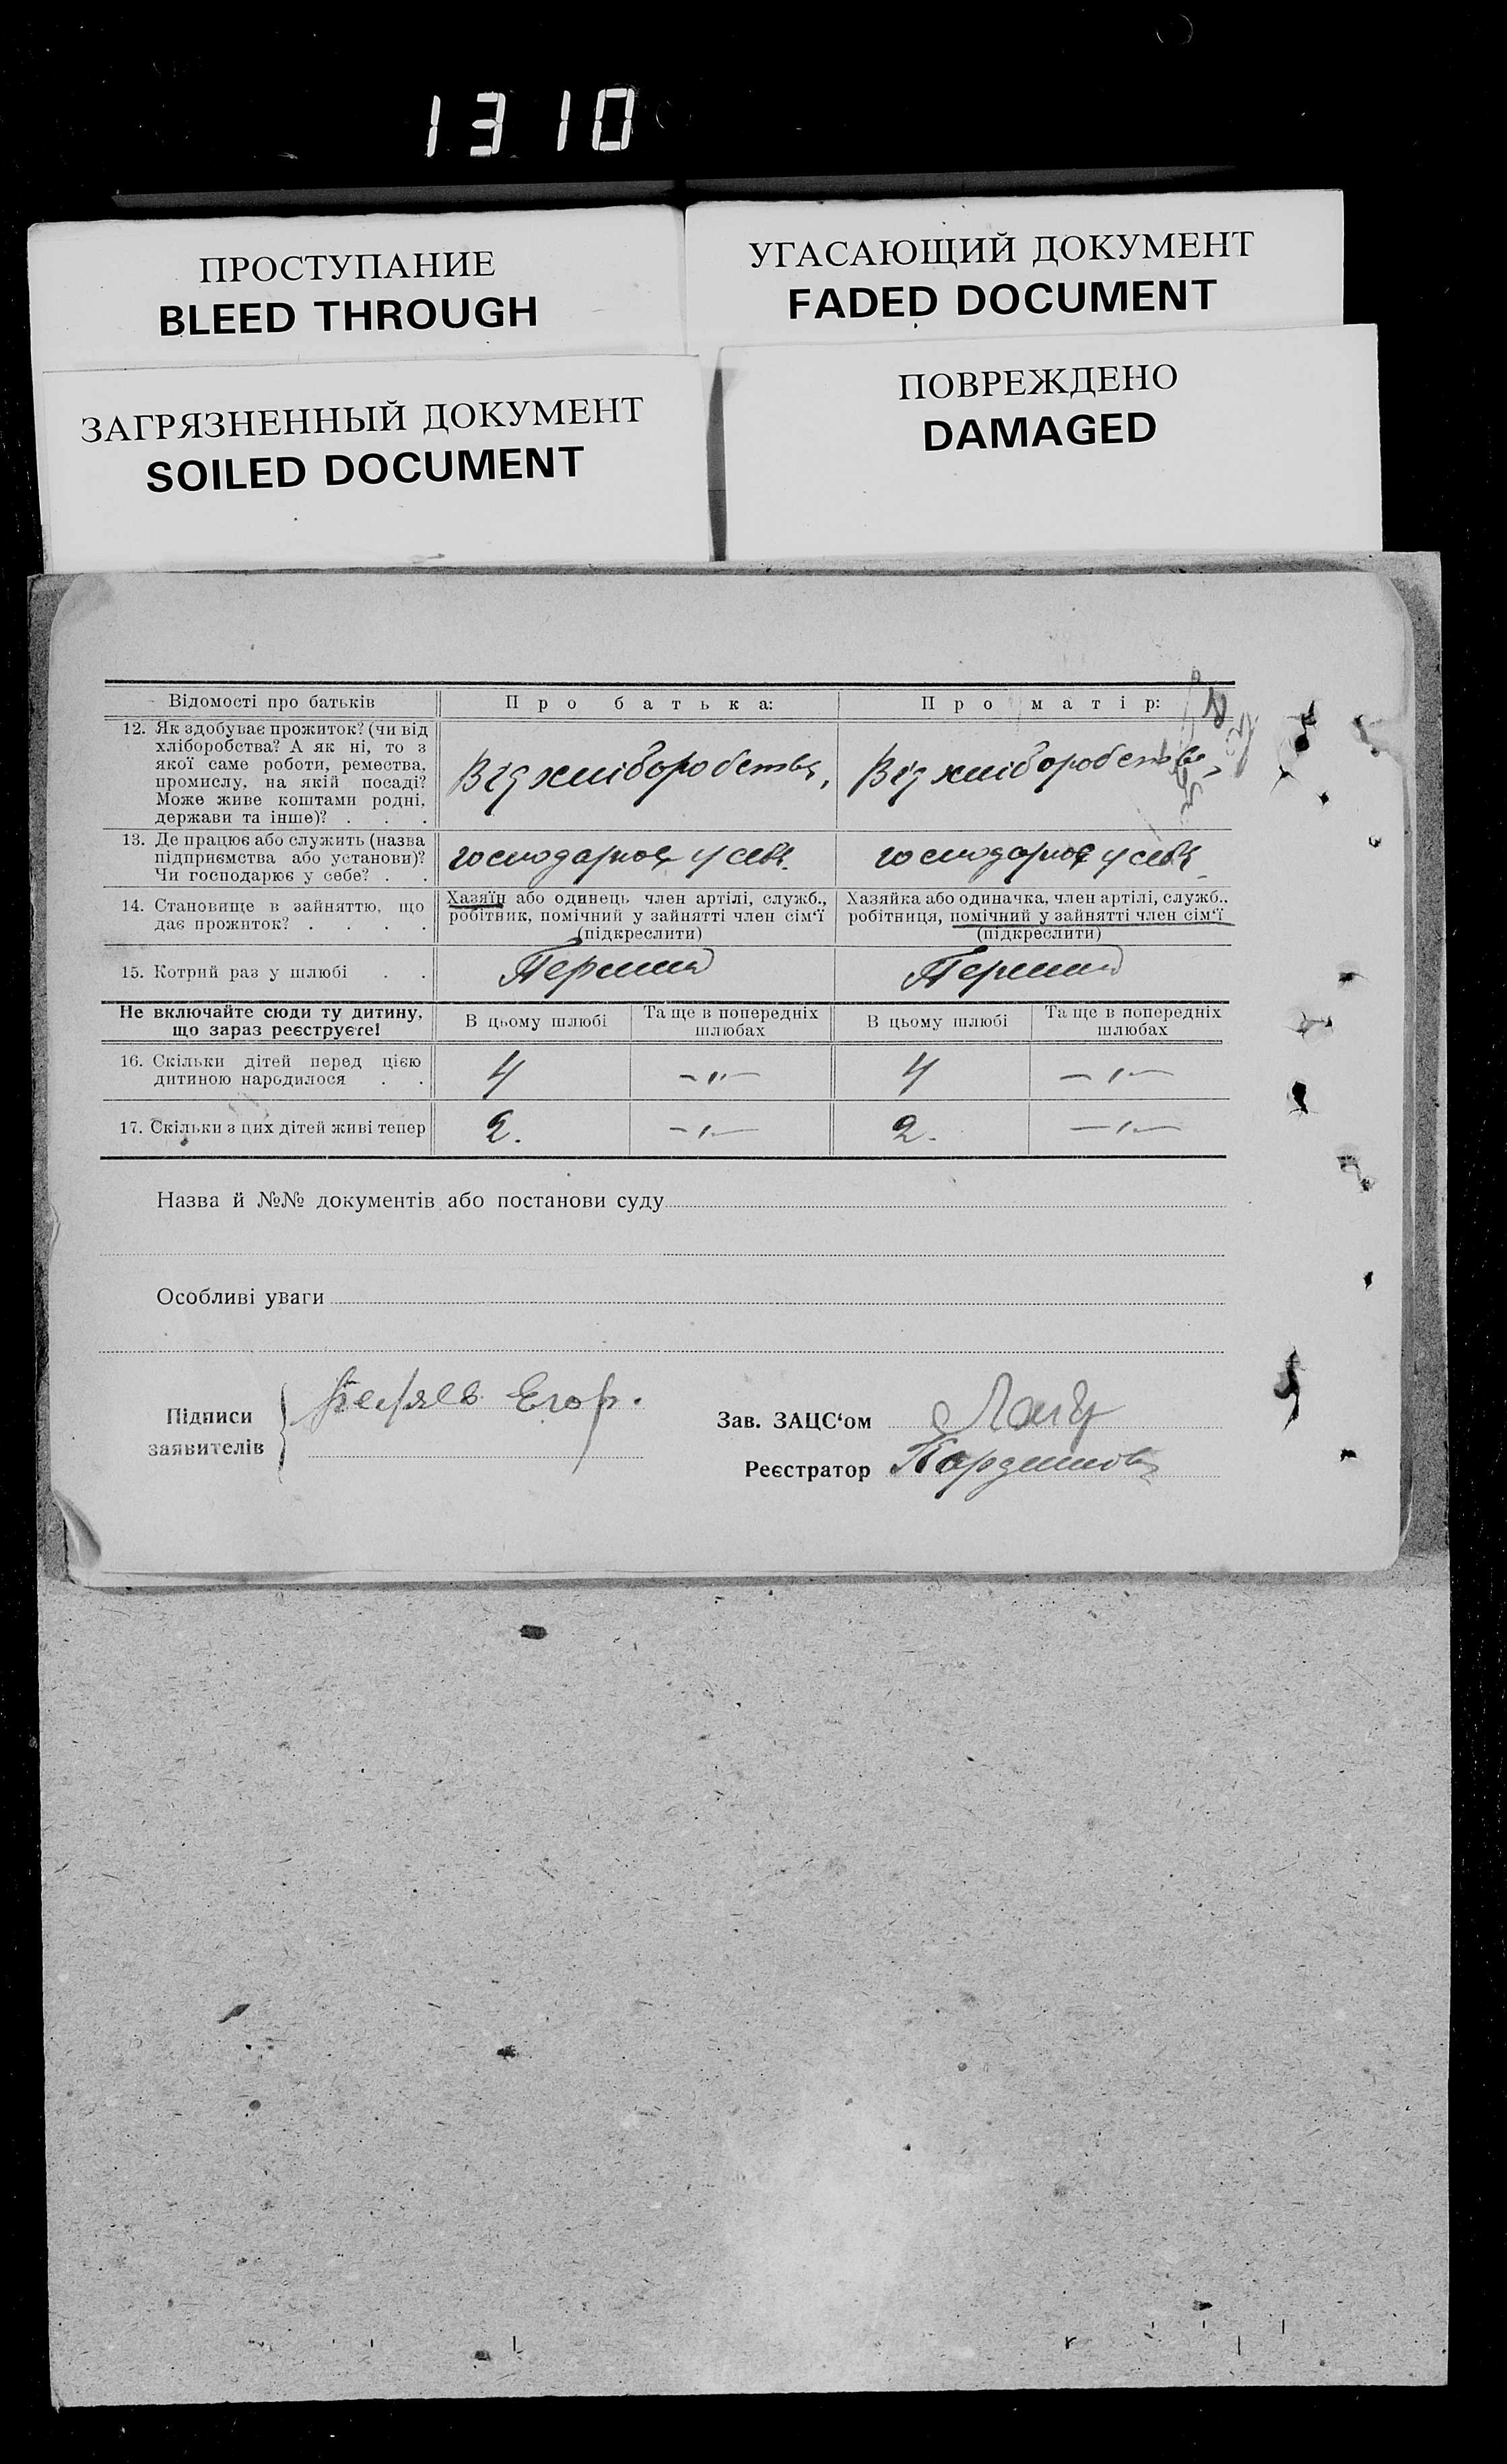 1310
ПРОСТУПАНИЕ
BLEED THROUGH
УГАСАЮЩИЙ ДОКУМЕНТ
FADED DOCUMENT
ЗАГРЯЗНЕННЫЙ ДОКУМЕНТ
SOILED DOCUMENT
ПОВРЕЖДЕНО
DAMAGED
Відомості про батьків
Про батька:
Про матір:
12. Як здобуває прожиток? (чи від
хліборобства? А як ні, то з
якої саме роботи, ремества,
промислу, на якій посаді?
Може живе коштами родні,
держави та інше)? . . .
Від хліборобства,
Від хліборобства,
13. Де працює або служить (назва
підприємства або установи)?
Чи господарює у себе? . .
господарює у себе.
господарює у себе.
14. Становище в зайняттю, що
дає прожиток? . . . .
Хазяїн або одинець член артілі, служб.,
робітник, помічний у зайнятті член сім'ї
(підкреслити)
Хазяйка або одиначка, член артілі, служб.,
робітниця, помічний у зайнятті член сім'ї
(підкреслити)
15. Котрий раз у шлюбі . .
Перший
Перший
Не включайте сюди ту дитину,
що зараз реєструєте!
В цьому шлюбі
Та ще в попередніх
шлюбах
В цьому шлюбі
Та ще в попередніх
шлюбах
16. Скільки дітей перед цією
дитиною народилося . .
4
–"–
4
–"–
17. Скільки з цих дітей живі тепер
2.
–"–
2.
–"–
Назва й №№ документів або постанови суду
Особливі уваги
Підписи
заявителів
Егор.
Зав. ЗАЦС'ом
Реєстратор